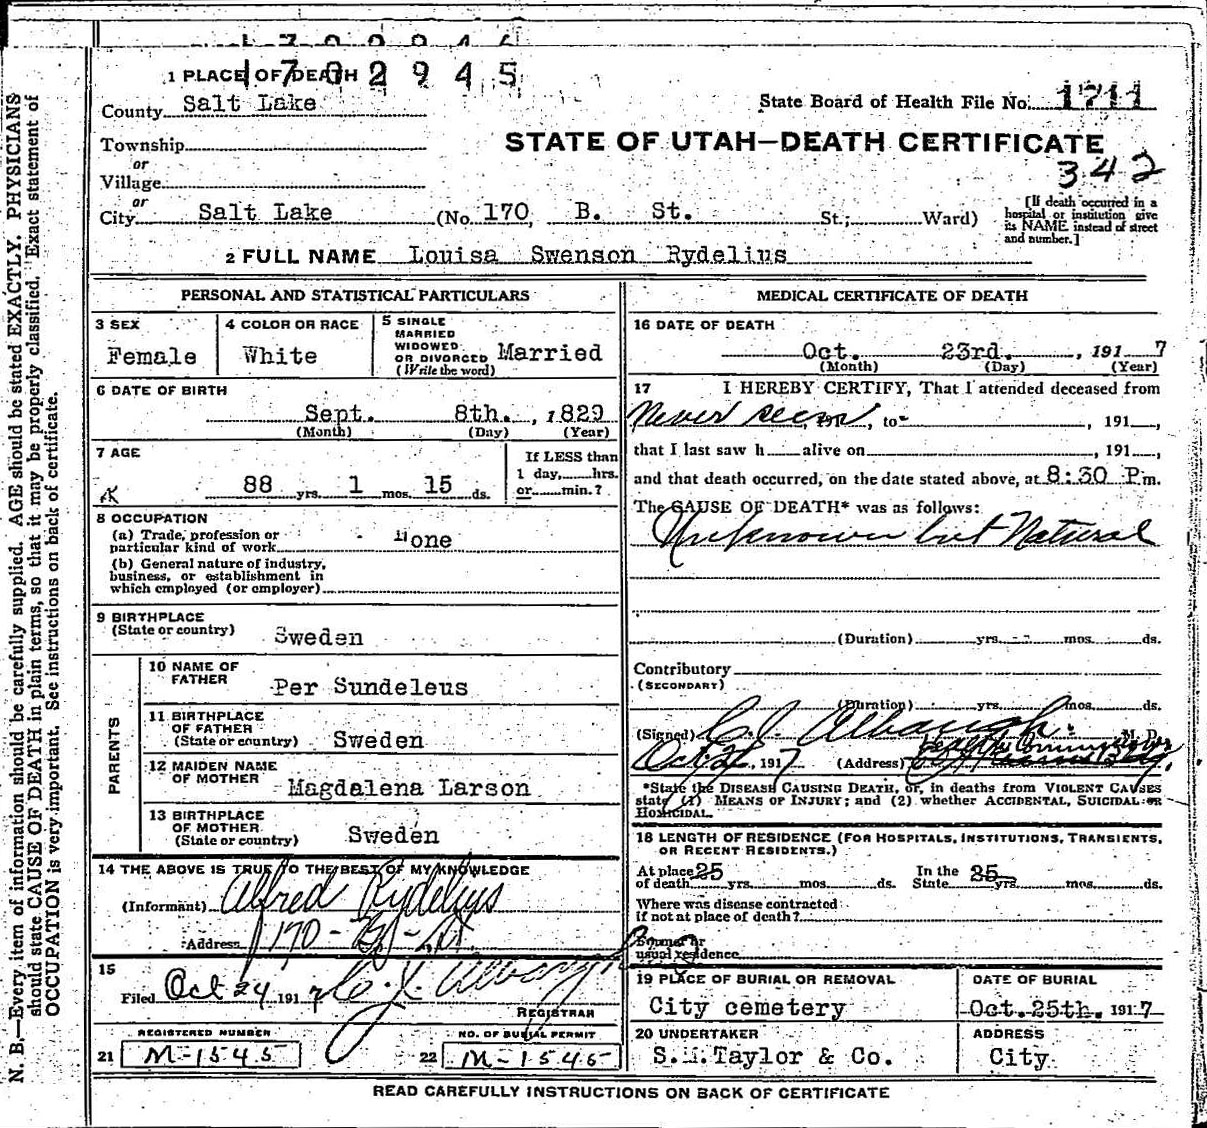 1702945
1 PLACE OF DEATH
County Salt Lake
State Board of Health File No. 1711
Township
STATE OF UTAH—DEATH CERTIFICATE
or
342
Village
or
City Salt Lake (No. 170 B. St. St.; Ward)
[If death occurred in a
hospital or institution give
its NAME instead of street
and number.]
2 FULL NAME Louisa Swenson Rydelius
PERSONAL AND STATISTICAL PARTICULARS
3 SEX
Female
4 COLOR OR RACE
White
5 SINGLE
MARRIED
WIDOWED
OR DIVORCED Married
(Write the word)
6 DATE OF BIRTH
Sept. 8th. , 1829
(Month) (Day) (Year)
7 AGE
88 yrs. 1 mos. 15 ds.
If LESS than
1 day, hrs.
or min.?
8 OCCUPATION
(a) Trade, profession or
particular kind of work None
(b) General nature of industry,
business, or establishment in
which employed (or employer)
9 BIRTHPLACE
(State or country) Sweden
PARENTS
10 NAME OF
FATHER Per Sundeleus
11 BIRTHPLACE
OF FATHER
(State or country) Sweden
12 MAIDEN NAME
OF MOTHER Magdalena Larson
13 BIRTHPLACE
OF MOTHER
(State or country) Sweden
14 THE ABOVE IS TRUE TO THE BEST OF MY KNOWLEDGE
(Informant) Alfred Rydelius
Address 170 - B - St.
15
Filed Oct 24 1917 C. J. Albaugh
REGISTRAR
REGISTERED NUMBER
21 M-1545
NO. OF BURIAL PERMIT
22 M-1545
MEDICAL CERTIFICATE OF DEATH
16 DATE OF DEATH
Oct. 23rd. , 1917
(Month) (Day) (Year)
17 I HEREBY CERTIFY, That I attended deceased from
Never seen, 191 , to , 191 ,
that I last saw h alive on , 191 ,
and that death occurred, on the date stated above, at 8:30 P.m.
The CAUSE OF DEATH* was as follows:
Unknown but Natural
(Duration) yrs. mos. ds.
Contributory
(SECONDARY)
(Duration) yrs. mos. ds.
(Signed) C. J. Albaugh M. D.
Health Commissioner
Oct 24, 1917 (Address)
*State the DISEASE CAUSING DEATH, or, in deaths from VIOLENT CAUSES
state (1) MEANS OF INJURY; and (2) whether ACCIDENTAL, SUICIDAL OR
HOMICIDAL.
18 LENGTH OF RESIDENCE (FOR HOSPITALS, INSTITUTIONS, TRANSIENTS,
OR RECENT RESIDENTS.)
At place
of death 25 yrs. mos. ds.
In the
State 25 yrs. mos. ds.
Where was disease contracted
if not at place of death?
Former or
usual residence
19 PLACE OF BURIAL OR REMOVAL
City cemetery
DATE OF BURIAL
Oct. 25th. 1917
20 UNDERTAKER
S.M.Taylor & Co.
ADDRESS
City
READ CAREFULLY INSTRUCTIONS ON BACK OF CERTIFICATE
N. B.—Every item of information should be carefully supplied. AGE should be stated EXACTLY. PHYSICIANS
should state CAUSE OF DEATH in plain terms, so that it may be properly classified. Exact statement of
OCCUPATION is very important. See instructions on back of certificate.